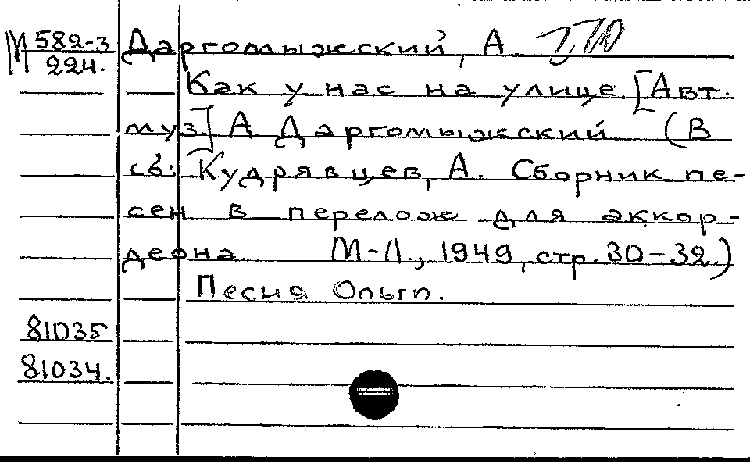 М 582-3 Даргомыжский, А.
224.
Как у нас на улице. [Авт.
муз] А Даргомыжский (В
сб: Кудрявцев, А. Сборник пе-
сен в перелож для аккор-
деона М-Л., 1949, стр. 30-32)
Песня Ольги.
81035
81034.